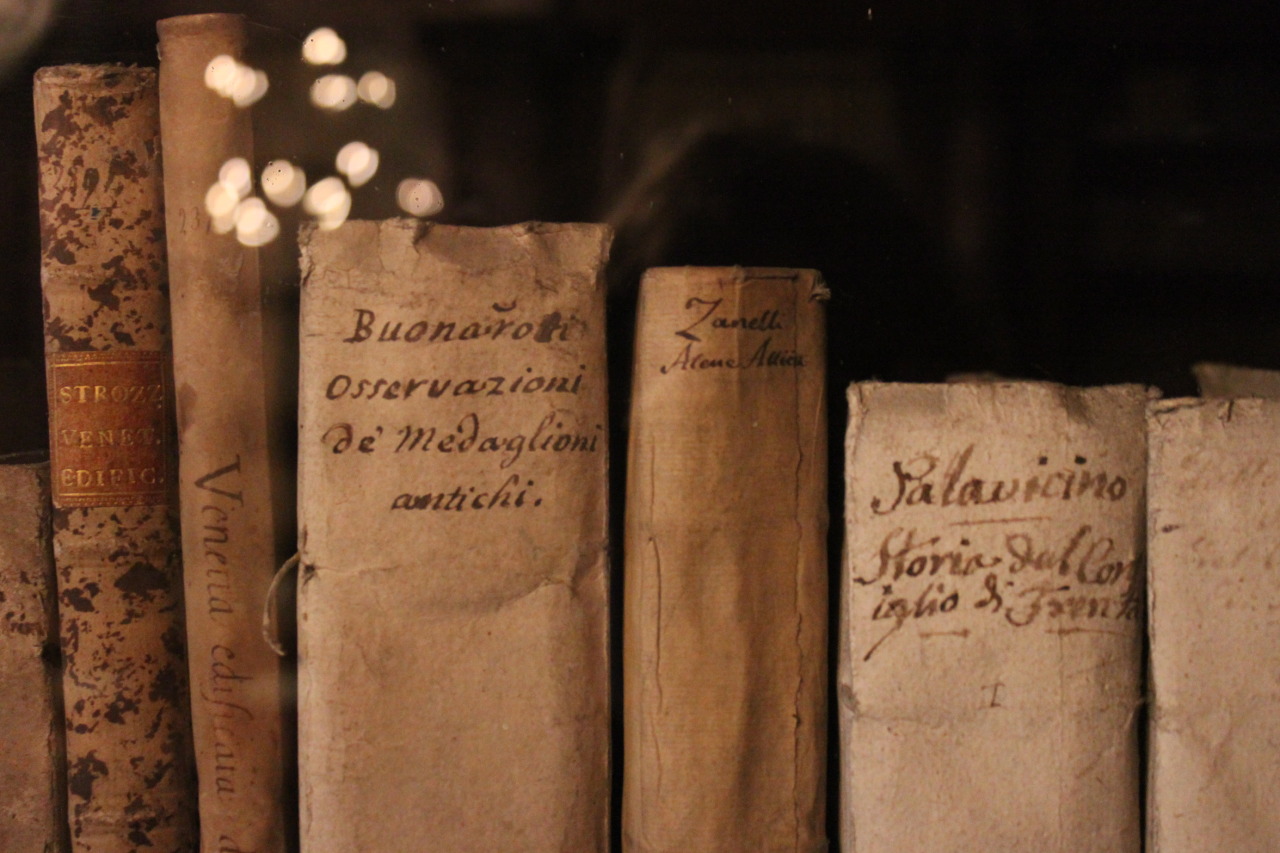 STROZZ
VENET.
EDIFIC.
Venetia edificata d
Buonaroti
Osservazioni
de' Medaglioni
antichi.
Zanelli
Atene Attica
Palavicino
Storia del Con
iglio di Trento
I